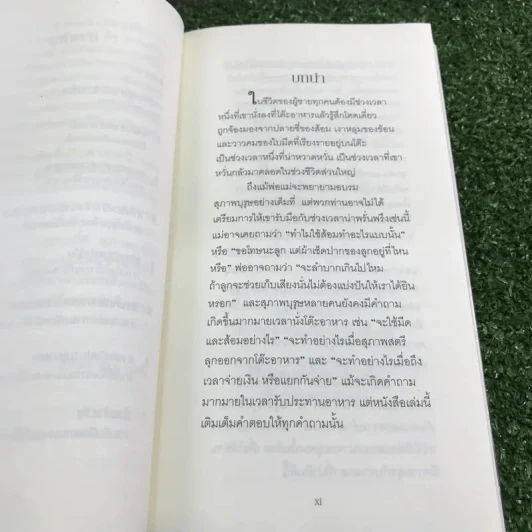 บทนำ
ในชีวิตของผู้ชายทุกคนต้องมีช่วงเวลา
หนึ่งที่เขานั่งลงที่โต๊ะอาหารแล้วรู้สึกโดดเดี่ยว
ถูกจ้องมองจากปลายซี่ของส้อม เงาหลุมของช้อน
และวาวคมของใบมีดที่เรียงรายอยู่บนโต๊ะ
เป็นช่วงเวลาหนึ่งที่น่าหวาดหวั่น เป็นช่วงเวลาที่เขา
หวั่นกลัวมาตลอดในช่วงชีวิตส่วนใหญ่
ถึงแม้พ่อแม่จะพยายามอบรม
สุภาพบุรุษอย่างเต็มที่ แต่พวกท่านอาจไม่ได้
เตรียมการให้เขารับมือกับช่วงเวลาน่าพรั่นพรึงเช่นนี้
แม่อาจเคยถามว่า “ทำไมใช้ส้อมทำอะไรแบบนั้น”
หรือ “ขอโทษนะลูก แต่ผ้าเช็ดปากของลูกอยู่ที่ไหน
หรือ” พ่ออาจถามว่า “จะลำบากเกินไปไหม
ถ้าลูกจะช่วยเก็บเสียงนั่นไม่ต้องแบ่งปันให้เราได้ยิน
หรอก” และสุภาพบุรุษหลายคนยังคงมีคำถาม
เกิดขึ้นมากมายเวลานั่งโต๊ะอาหาร เช่น “จะใช้มีด
และส้อมอย่างไร” “จะทำอย่างไรเมื่อสุภาพสตรี
ลุกออกจากโต๊ะอาหาร” และ “จะทำอย่างไรเมื่อถึง
เวลาจ่ายเงิน หรือแยกกันจ่าย” แม้จะเกิดคำถาม
มากมายในเวลารับประทานอาหาร แต่หนังสือเล่มนี้
เติมเต็มคำตอบให้ทุกคำถามนั้น
XI